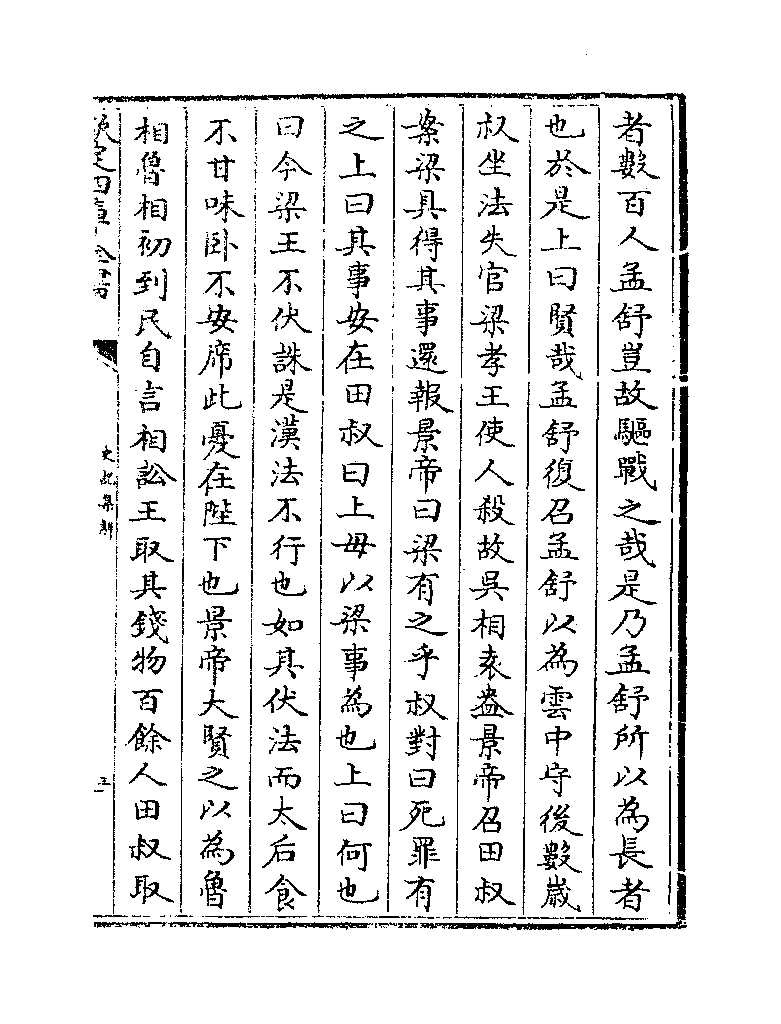 者數百人孟舒豈故驅戰之哉是乃孟舒所以為長者
也於是上曰賢哉孟舒復召孟舒以為雲中守後數歲
叔坐法失官梁孝王使人殺故吳相袁盎景帝召田叔
案梁具得其事還報景帝曰梁有之乎叔對曰死罪有
之上曰其事安在田叔曰上毋以梁事為也上曰何也
曰今梁王不伏誅是漢法不行也如其伏法而太后食
不甘味卧不安席此憂在陛下也景帝大賢之以為魯
相魯相初到民自言相訟王取其錢物百餘人田叔取
欽定四庫全書
史記集解
五